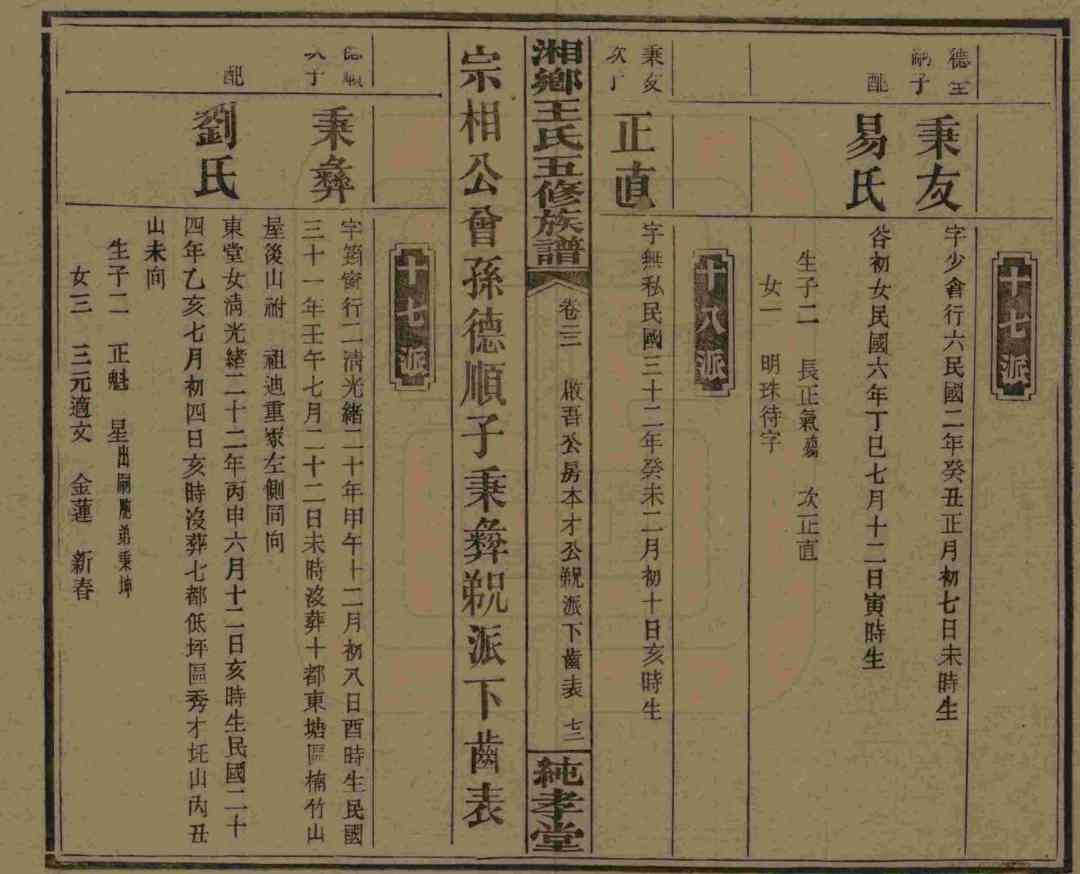 十七派
德
子
秉友
字少會行六民國二年癸丑正月初七日未時生
配
易氏
谷初女民國六年丁巳七月十二日寅時生
生子二 長正氣殤 次正直
女一 明珠待字
十八派
秉友
次子
正直
字無私民國三十二年癸未二月初十日亥時生
湘鄉王氏五修族譜
卷三 啟吾公房本才公派下齒表 七二
純孝堂
宗相公曾孫德順子秉彝派下齒表
十七派
德順
次子
秉彝
字筠賓行二清光緒二十年甲午十二月初八日酉時生民國
三十一年壬午七月二十二日未時沒葬十都東塘區楠竹山
屋後山祔 祖迪重冢左側同向
配
劉氏
東堂女清光緒二十二年丙申六月十二日亥時生民國二十
四年乙亥七月初四日亥時沒葬七都低坪區秀才坵山丙丑
山未向
生子二 正魁 星出嗣胞弟秉坤
女三 三元適文 金蓮 新春